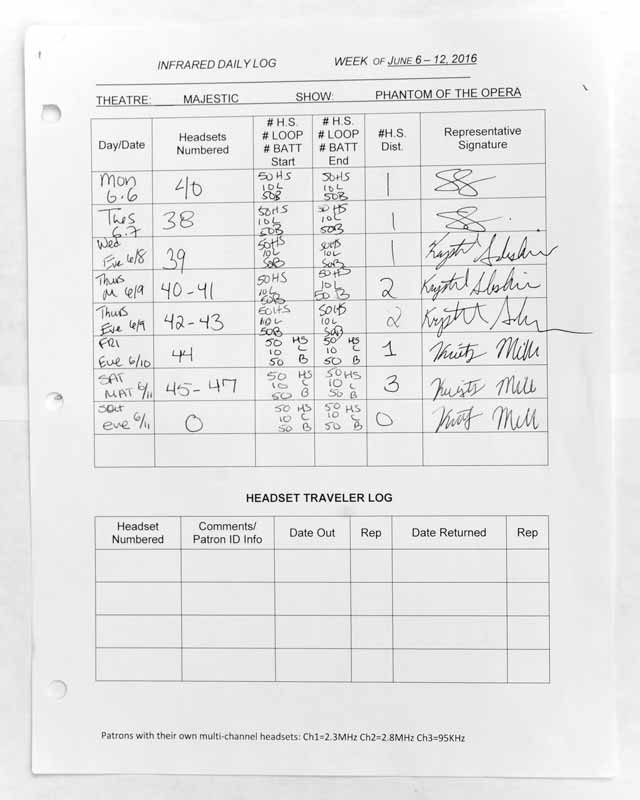 INFRARED DAILY LOG WEEK OF JUNE 6 – 12, 2016
THEATRE: MAJESTIC SHOW: PHANTOM OF THE OPERA
Day/Date
Headsets
Numbered
# H.S.
# LOOP
# BATT
Start
# H.S.
# LOOP
# BATT
End
#H.S.
Dist.
Representative
Signature
Mon
6.6
40
50HS
10L
50B
50HS
10L
50B
1
Tues
6.7
38
50HS
10L
50B
50HS
10L
50B
1
Wed
Eve 6/8
39
50HS
10L
50B
50HS
10L
50B
1
Thurs
M 6/9
40-41
50HS
10L
50B
50HS
10L
50B
2
Thurs
Eve 6/9
42-43
50HS
10L
50B
50HS
10L
50B
2
FRI
Eve 6/10
44
50 HS
10 L
50 B
50 HS
10 L
50 B
1
SAT
MAT 6/11
45-47
50 HS
10 L
50 B
50 HS
10 L
50 B
3
Sat
eve 6/11
0
50 HS
10 L
50 B
50 HS
10 L
50 B
0
HEADSET TRAVELER LOG
Headset
Numbered
Comments/
Patron ID Info
Date Out
Rep
Date Returned
Rep
Patrons with their own multi-channel headsets: Ch1=2.3MHz Ch2=2.8MHz Ch3=95KHz